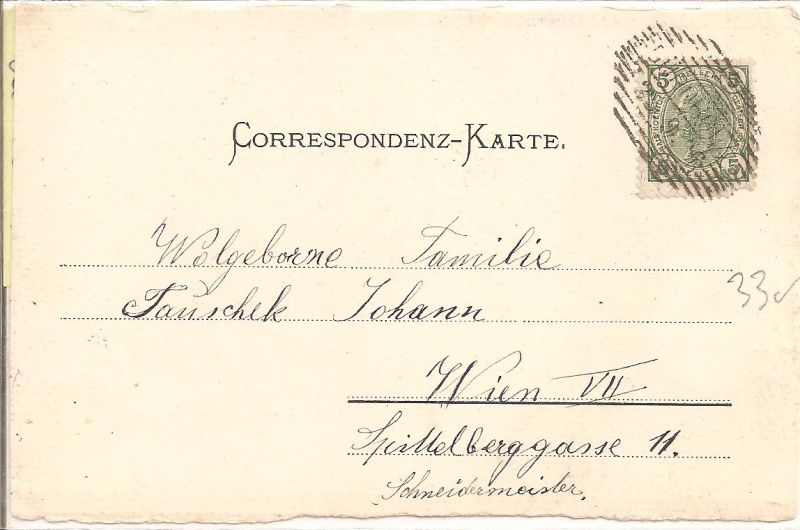 CORRESPONDENZ-KARTE.
5 5
5 5
Wolgeborne Familie
Tauschek Johann
33
Wien VII
Spittelberggasse 11.
Schneidermeister.